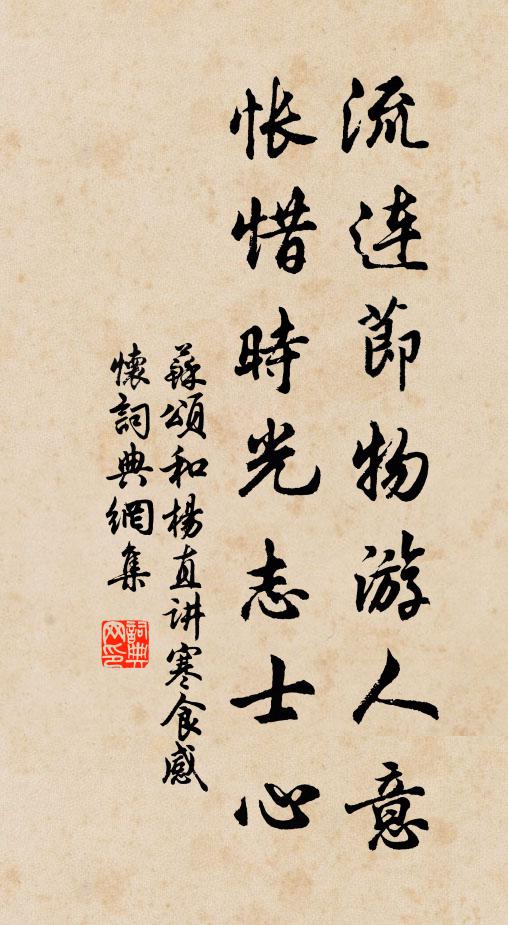 流連節物游人意
悵惜時光志士心
蘇頌和楊直講寒食感
懷詞典網集
詞典網印